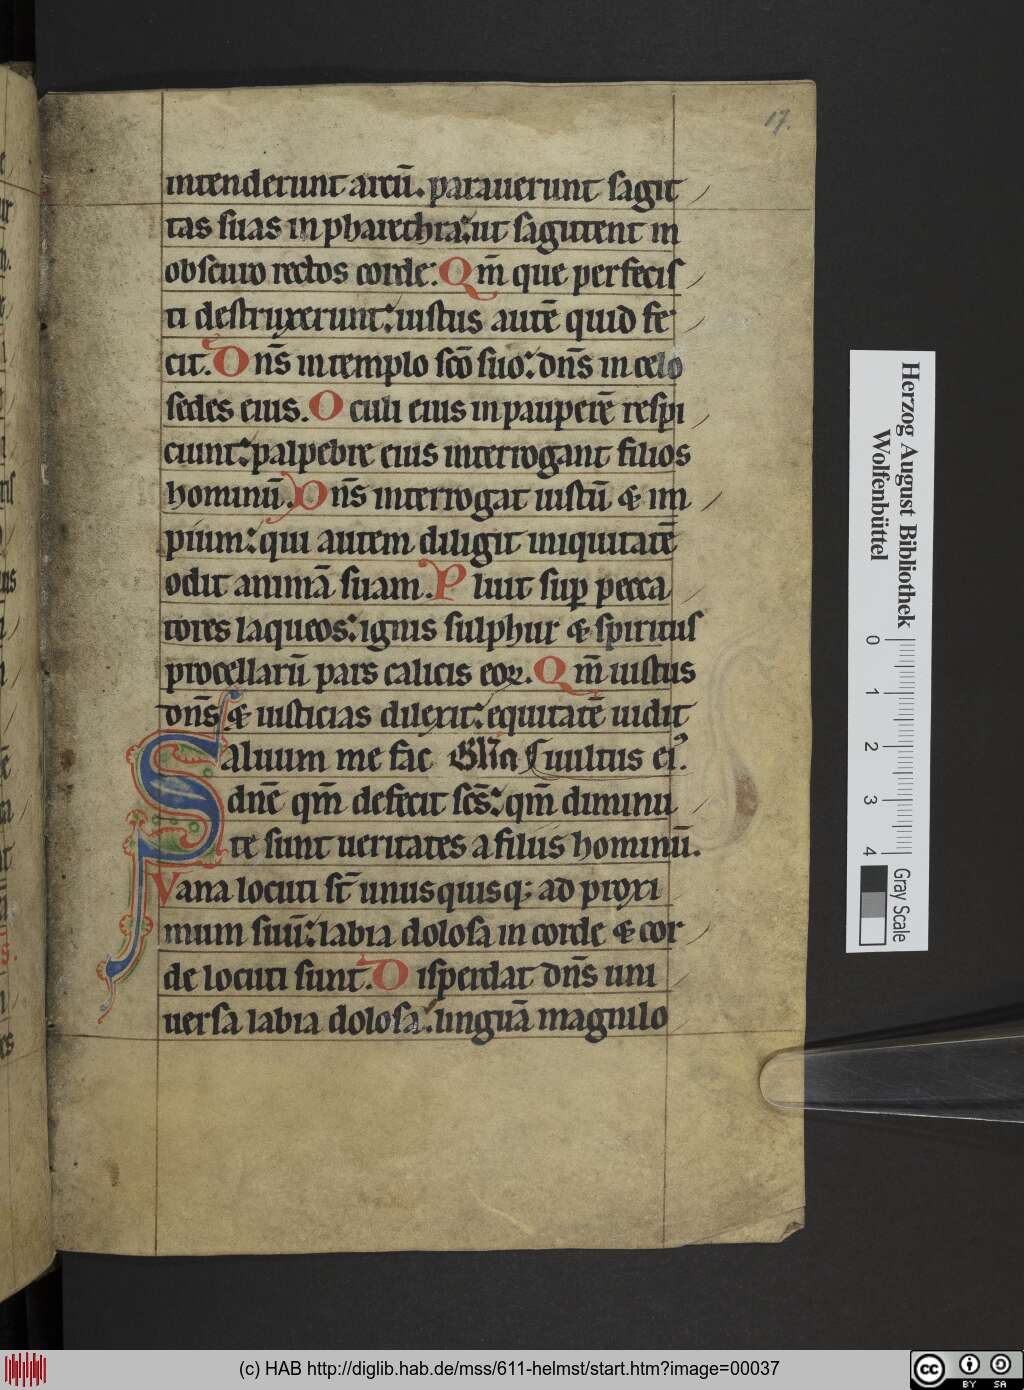 17.
intenderunt arcū. parauerunt sagit
tas suas in pharethra: ut sagittent in
obscuro rectos corde: Qm̄ que perfecis
ti destruxerunt: iustus autē quid fe
cit. Dn̄s in templo scō suo: dn̄s in celo
sedes eius. Oculi eius in pauperē respi
ciunt: palpebre eius interrogant filios
hominū. Dn̄s interrogat iustū & im
pium: qui autem diligit iniquitatē
odit animā suam. Pluit sup̄ pecca
tores laqueos: ignis sulphur & spiritus
procellarū pars calicis eoꝝ. Qm̄ iustus
dn̄s & iusticias dilexit: equitatē uidit
Saluum me fac Gl̄ia uultus eiꝰ.
dn̄e qm̄ defecit sc̄s: qm̄ diminu
te sunt ueritates a filiis hominū.
Vana locuti st̄ unusquisq; ad proxi
mum suū: labia dolosa in corde & cor
de locuti sunt. Disperdat dn̄s uni
uersa labia dolosa: linguā magnilo
Herzog August Bibliothek
Wolfenbüttel
0 1 2 3 4
Gray Scale
(c) HAB http://diglib.hab.de/mss/611-helmst/start.htm?image=00037
cc BY SA